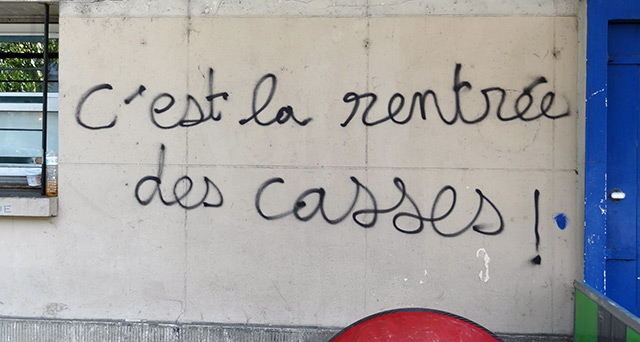 c'est la rentrée
des casses !